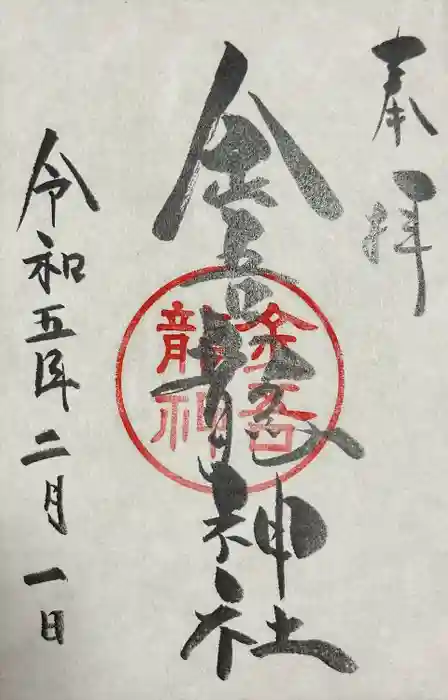 奉拝
金吉龍神社
金吉龍神
令和五年二月一日